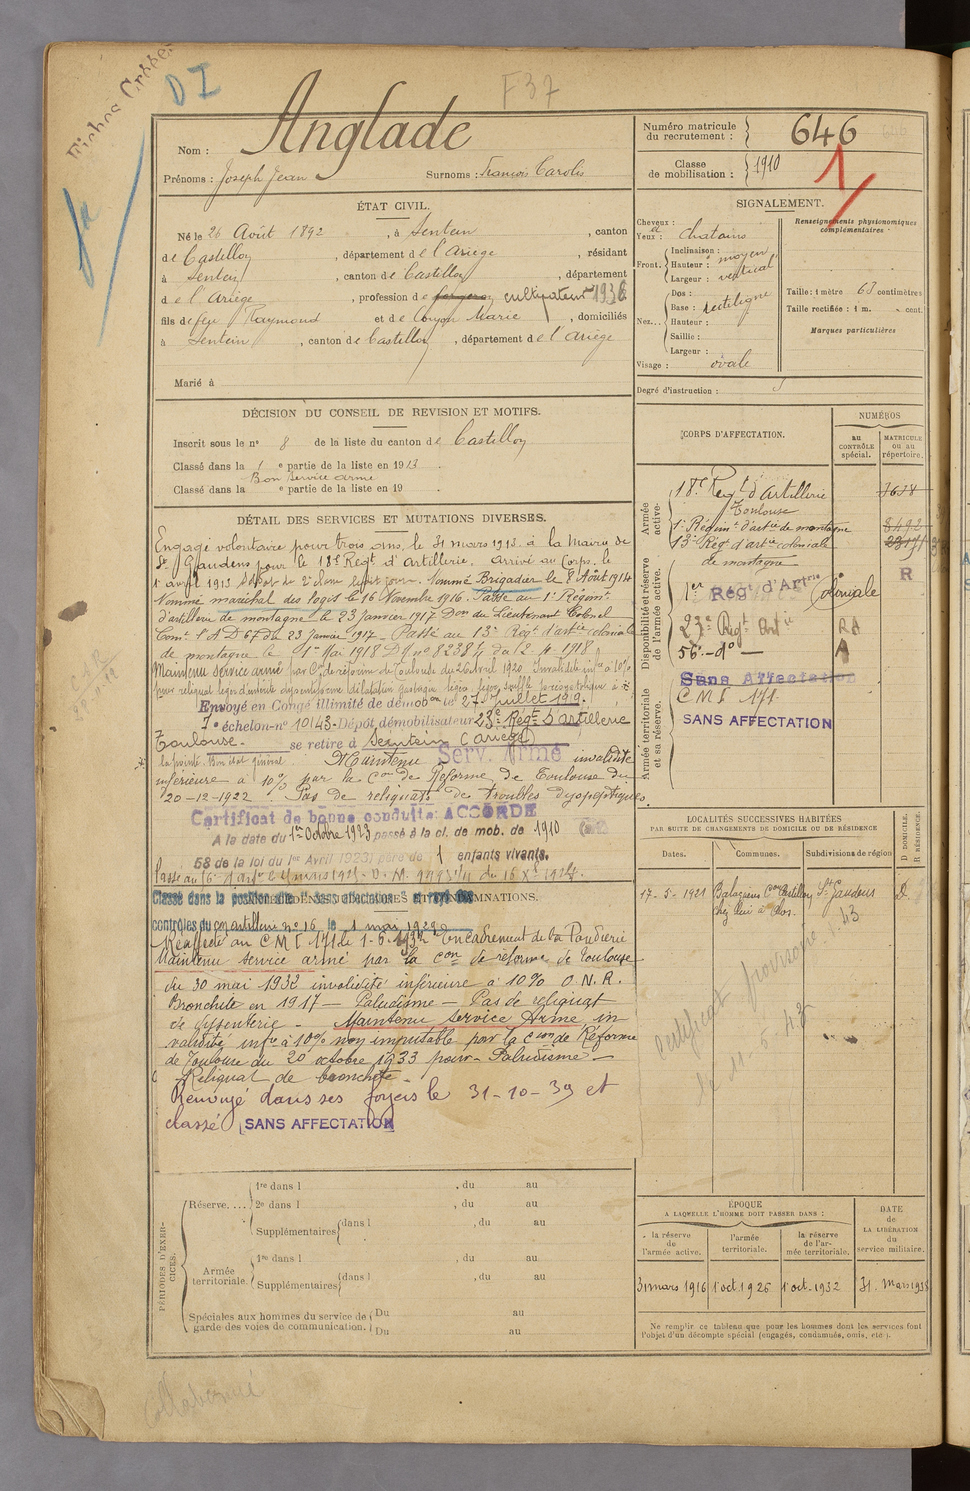 D I
F 37
Nom : Anglade
Prénoms : Joseph Jean Surnoms : François Carolis
Numéro matricule du recrutement : 646
Classe de mobilisation : 1910
1
ÉTAT CIVIL.
Né le 26 Août 1892, à Sentein, canton
de Castillon, département de l'Ariège, résidant
à Sentein, canton de Castillon, département
de l'Ariège, profession de cultivateur 1936
fils de feu Raymond et de Marie, domiciliés
à Sentein, canton de Castillon, département de l'Ariège
Marié à
SIGNALEMENT.
Cheveux :
et
Yeux : chatains
Front. Inclinaison :
Hauteur : moyen
Largeur : vertical
Nez... Dos :
Base : rectiligne
Hauteur :
Saillie :
Largeur :
Visage : ovale
Renseignements physionomiques complémentaires
Taille : 1 mètre 63 centimètres
Taille rectifiée : 1 m. cent.
Marques particulières
Degré d'instruction :
DÉCISION DU CONSEIL DE REVISION ET MOTIFS.
Inscrit sous le n° 8 de la liste du canton de Castillon
Classé dans la 1 e partie de la liste en 1913.
Bon Service armé
Classé dans la e partie de la liste en 19
DÉTAIL DES SERVICES ET MUTATIONS DIVERSES.
Engagé volontaire pour trois ans, le 31 mars 1913 à la Mairie de
St Gaudens pour le 18e Regt d'Artillerie. Arrivé au Corps, le
1er avril 1913 Soldat de 2e classe ledit jour. Nommé Brigadier le 8 Août 1914
Nommé maréchal des logis le 16 Novembre 1916. Passé au 1er Régimt
d'artillerie de montagne le 23 janvier 1917 Don du Lieutenant Colonel
Comt l'A D 67 du 23 Janvier 1917 - Passé au 13e Régt d'artie coloniale
de montagne le 1er Mai 1918 D M n° 8238 1/4 du 12-4-1918
Maintenu service armé par Con de réforme de Toulouse du 26 Avril 1920 Invalidité infre à 10%
Envoyé en Congé illimité de démobon le 27 Juillet 1919.
7e échelon - n° 10143 - Dépôt démobilisateur 23e Régt D'artillerie
Toulouse. se retire à Sentein (Ariège)
Serv. Armé
la pointe. Bon état général Maintenu invalidité
inférieure à 10% par la Con de Réforme de Toulouse du
20-12-1922. Pas de reliquats de troubles dyspeptiques.
Certificat de bonne conduite ACCORDÉ
A la date du 1er Octobre 1923 passé à la cl. de mob. de 1910
58 de la loi du 1er Avril 1923) père de 1 enfants vivants.
contrôles du 1 mai 1929
Réaffecté au C M I 171 le 1-6-1932 Encadrement de la Poudrerie
Maintenu service armé par la con de réforme de Toulouse
du 30 mai 1932 invalidité inférieure à 10% O.N.R.
Bronchite en 1917 - Paludisme - Pas de reliquat
de dysenterie - Maintenu Service Armé in-
validité infre à 10% non imputable par la Con de Réforme
de Toulouse du 20 octobre 1933 pour - Paludisme -
Reliquat de bronchite -
Renvoyé dans ses foyers le 31-10-39 et
classé SANS AFFECTATION
CORPS D'AFFECTATION.
NUMÉROS
au CONTRÔLE spécial.
MATRICULE ou au répertoire.
Armée active.
18e Regt d'Artillerie
Toulouse
1er Régimt d'artie de montagne
13e Régt d'artie coloniale
de montagne
Disponibilité et réserve de l'armée active.
1er Rég. d'Artrie Coloniale R
23e Regt Artie
56e - do - A
Armée territoriale et sa réserve.
Sans Affectation
C M I 171
SANS AFFECTATION
LOCALITÉS SUCCESSIVES HABITÉES
PAR SUITE DE CHANGEMENTS DE DOMICILE OU DE RÉSIDENCE
Dates. Communes. Subdivisions de région D DOMICILE. R RÉSIDENCE.
17-5-1921 Balaguères Con Castillon St Gaudens D
Certificat provisoire
le 11-5-43
PÉRIODES D'EXERCICES.
Réserve.... 1re dans l , du au
2e dans l , du au
Supplémentaires dans l , du au
Armée territoriale. 1re dans l , du au
Supplémentaires dans l , du au
Spéciales aux hommes du service de garde des voies de communication. Du au
Du au
ÉPOQUE
A LAQUELLE L'HOMME DOIT PASSER DANS :
la réserve de l'armée active. l'armée territoriale. la réserve de l'armée territoriale.
DATE de LA LIBÉRATION du service militaire.
31 mars 1916 1er oct. 1926 1er oct. 1932 31 Mars 1938
Ne remplir ce tableau que pour les hommes dont les services font
l'objet d'un décompte spécial (engagés, condamnés, omis, etc.).